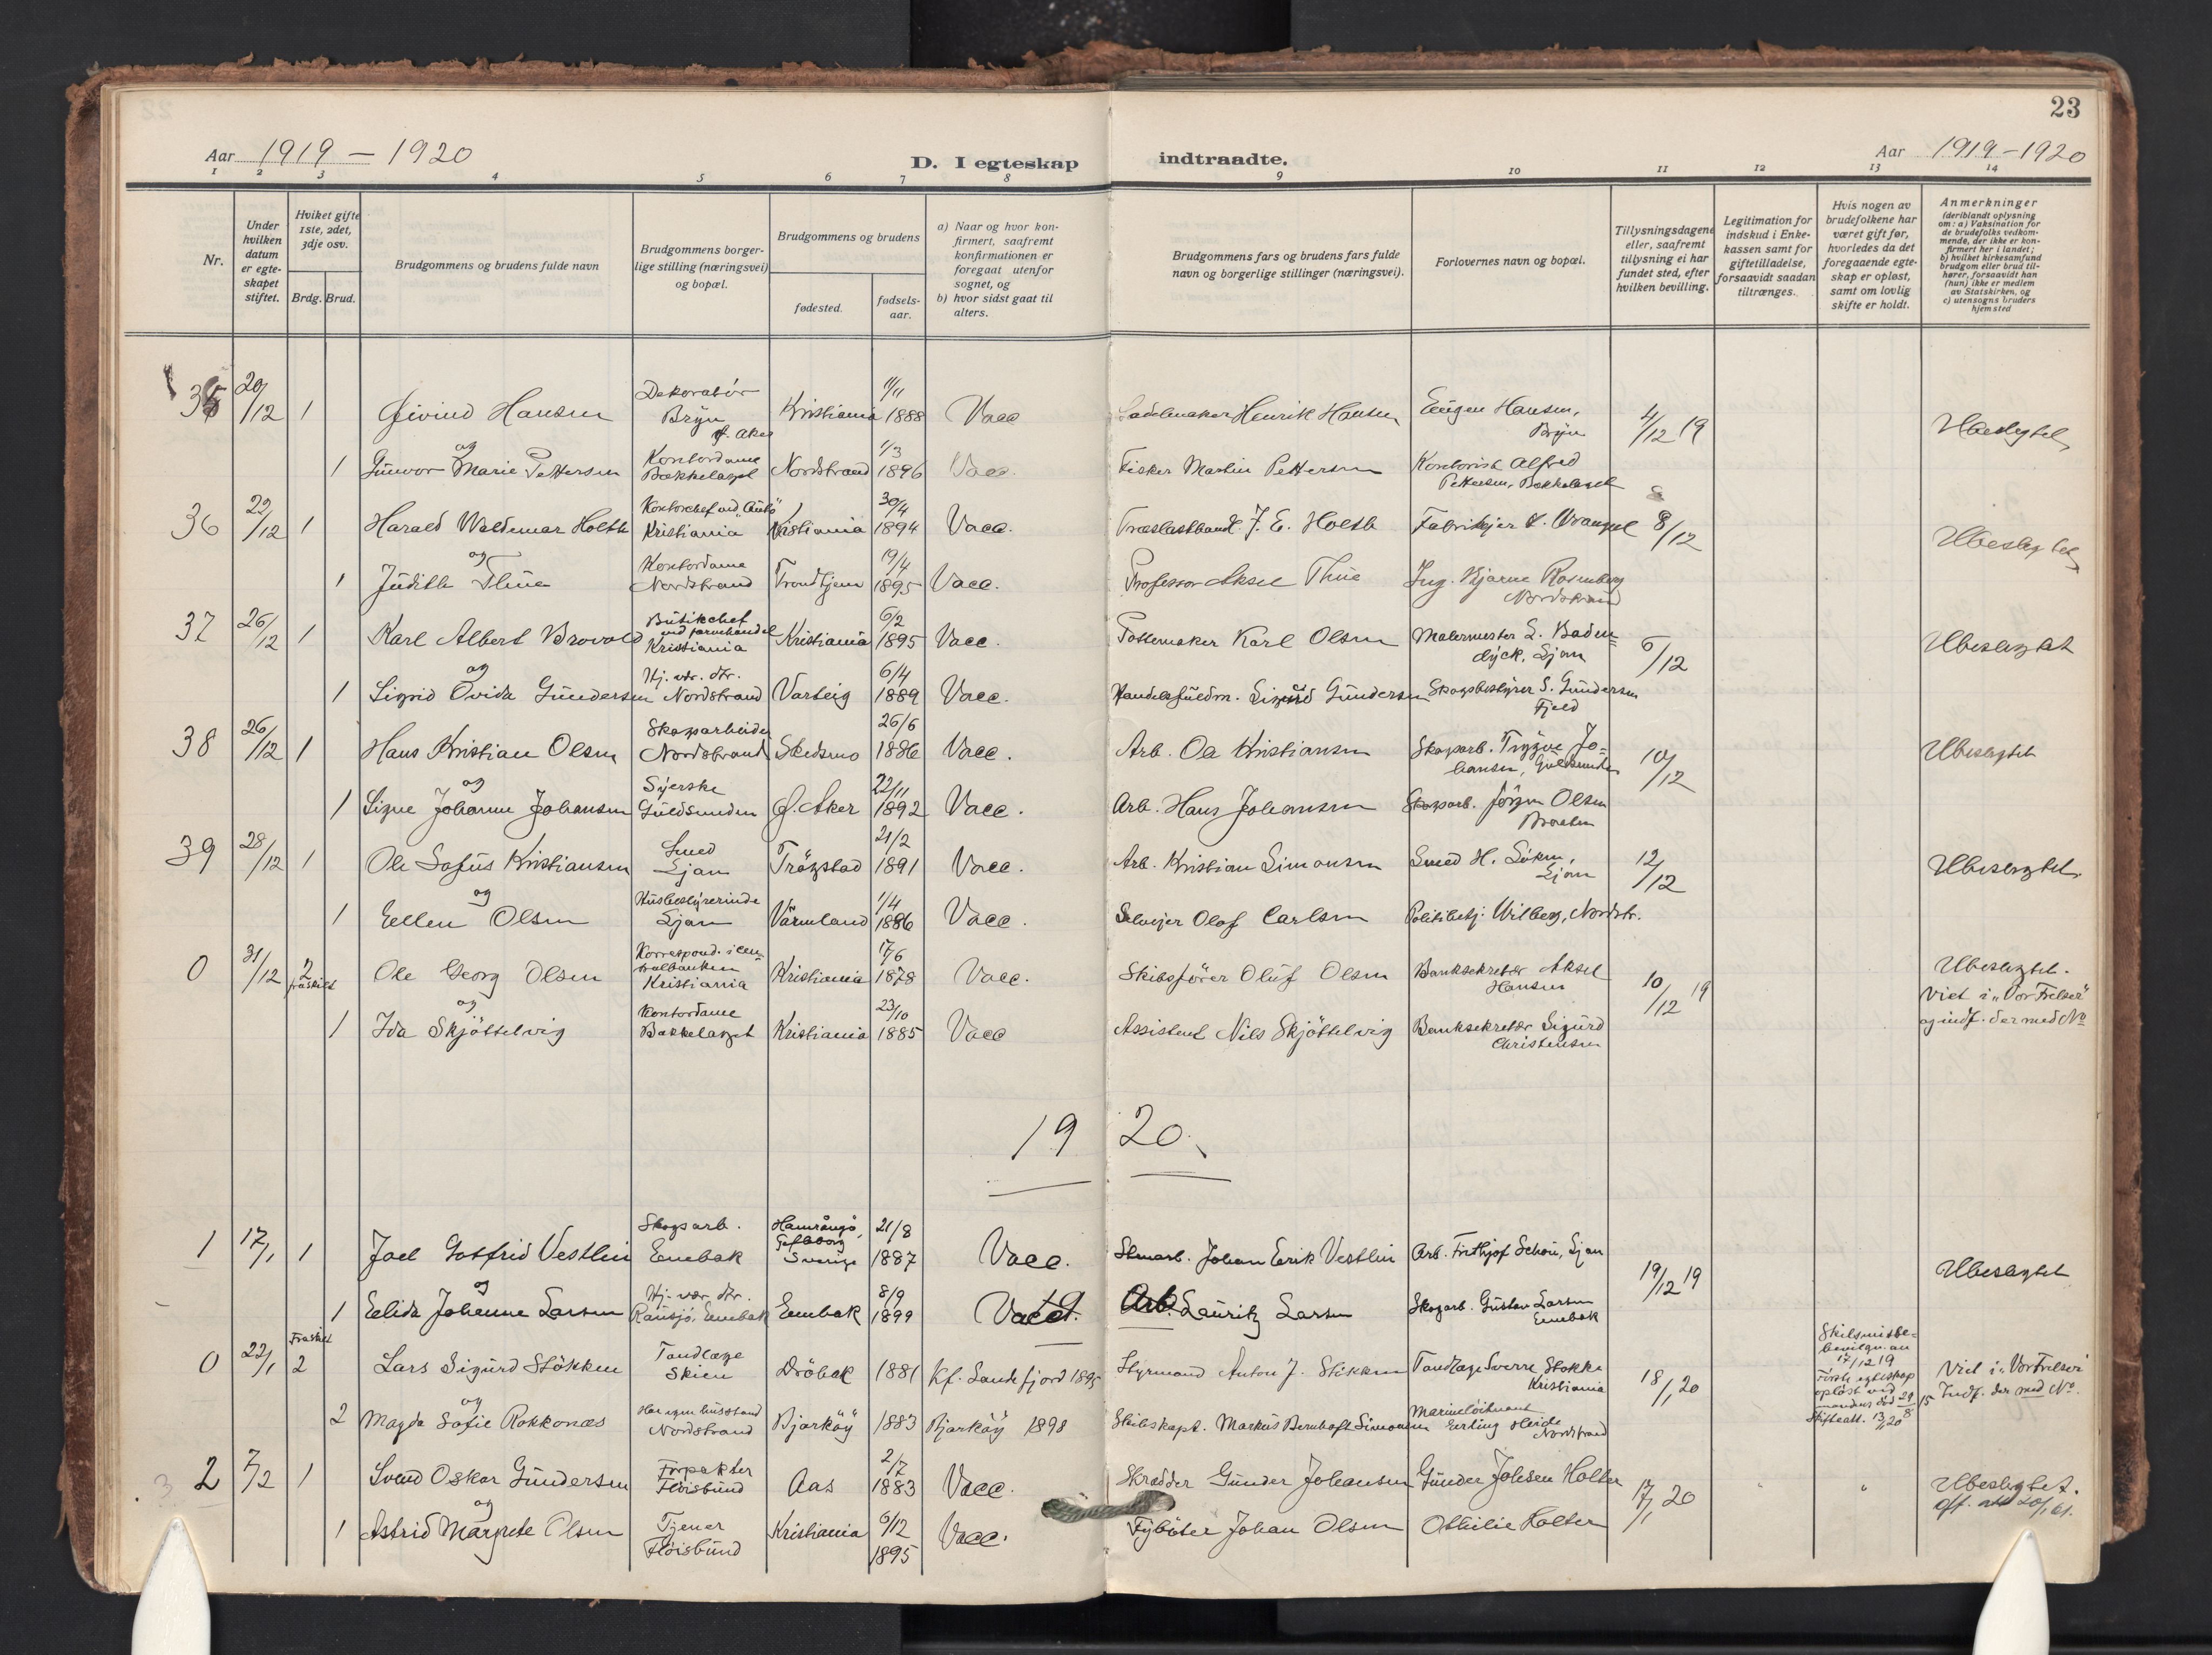 23
Aar 1919 – 1920
D. I egteskap indtraadte.
Aar 1919 – 1920
1 2 3 4 5 6 7 8 9 10 11 12 13 14
Nr.
Under hvilken datum er egteskapet stiftet.
Hviket gifte 1ste, 2det, 3dje osv.
Brdg. Brud.
Brudgommens og brudens fulde navn
Brudgommens borgerlige stilling (næringsvei) og bopæl.
Brudgommens og brudens
fødested.
fødselsaar.
a) Naar og hvor konfirmert, saafremt konfirmationen er foregaat utenfor sognet, og
b) hvor sidst gaat til alters.
Brudgommens fars og brudens fars fulde navn og borgerlige stillinger (næringsvei).
Forlovernes navn og bopæl.
Tillysningsdagene eller, saafremt tillysning ei har fundet sted, efter hvilken bevilling.
Legitimation for indskud i Enkekassen samt for giftetilladelse, forsaavidt saadan tiltrænges.
Hvis nogen av brudefolkene har været gift før, hvorledes da det foregaaende egteskap er opløst, samt om lovlig skifte er holdt.
Anmerkninger
(deriblandt oplysning om: a) Vaksination for de brudefolks vedkommende, der ikke er konfirmert her i landet; b) hvilket kirkesamfund brudgom eller brud tilhører, forsaavidt han (hun) ikke er medlem av Statskirken, og c) utensogns bruders hjemsted
35 20/12 1 Øivind Hansen Dekoratør Bryn Ø. Aker Kristiania 11/11 1888 Vacc Sadelmaker Henrik Hansen Eugen Hansen, Bryn 4/12 19 Ubeslegtet
og
1 Gunvor Marie Pettersen Kontordame Bækkelaget Nordstrand 1/3 1896 Vacc. Fisker Martin Pettersen Kontorist Alfred Pettersen, Bækkelaget
36 22/12 1 Harald Waldemar Holth Kristiania Kristiania 30/4 1894 Vacc. Trælasthandl. J. E. Holth 8/12 Ubeslegtet
og
1 Judith Thue Kontordame Nordstrand Trondhjem 19/4 1895 Vacc. Professor Aksel Thue Ing. Bjarne Rosenberg Nordstrand
37 26/12 1 Karl Albert Brovold Butikchef ved farvehandel Kristiania Kristiania 6/2 1895 Vacc. Pottemaker Karl Olsen Malermester L. Badendyck, Ljan 6/12 Ubeslegtet
og
1 Sigrid Ovida Gundersen Hj. vær. dtr. Nordstrand Varteig 6/4 1889 Vacc. Handelsfuldm. Sigurd Gundersen Skogsbestyrer S. Gundersen Fjeld
38 26/12 1 Hans Kristian Olsen Skogsarbeider Nordstrand Skedsmo 26/6 1886 Vacc. Arb. Ole Kristiansen Skogsarb. Trygve Johansen, Guldsmeden 10/12 Ubeslegtet
og
1 Signe Johanne Johansen Syerske Guldsmeden Ø. Aker 22/11 1892 Vacc. Arb. Hans Johansen Skogsarb. Jørgen Olsen Braaten
39 28/12 1 Ole Sofus Kristiansen Smed Ljan Trögstad 21/2 1891 Vacc. Arb. Kristian Simonsen Smed H. Ljan 12/12 Ubeslegtet.
og
1 Ellen Olsen Husbestyrerinde Ljan Värmland 1/4 1886 Vacc. Selveier Olof Carlsen Politibetj. Wilberg, Nordstr.
0 31/12 2 fraskilt Ole Georg Olsen Korrespond. i Centralbanken Kristiania Kristiania 17/6 1878 Vacc. Skibsfører Oluf Olsen Banksekretær Aksel Hansen 10/12 19 Ubeslegtet. Viet i "Vor Frelser" og indf. der med No
og
1 Ida Skjöttelvig Kontordame Bækkelaget Kristiania 23/10 1885 Vacc Assistent Nils Skjöttelvig Banksekretær Sigurd Christensen
19 20.
1 17/1 1 Joel Gotfrid Vestlin Skogsarb. Enebak Hamrångö, Gefleborg, Sverige 21/8 1887 Vacc. Stenarb. Johan Erik Vestlin Arb. Frithjof Schou, Ljan 19/12 19 Ubeslegtet
og
1 Elida Johanne Larsen Hj. vær. dtr. Rausjö, Enebak Enebak 8/9 1899 Vacc. Arb. Lauritz Larsen Skogsarb. Gustav Larsen Enebak
0 22/1 Fraskilt 2 Lars Sigurd Stökken Tandlæge Skien Dröbak 1881 Kf. Sandefjord 1895 Styrmand Anton J. Stökken Tandlæge Sverre Stokke Kristiania 18/1 20 Skilsmissebevilgn. av 17/12 19 Første egteskap opløst ved mandens död 29/8 15 Skifteatt. 13/1 20 Viet i "Vor Frelser" Indf. der med No.
og
2 Magda Sofie Rokkonæs Har egen husstand Nordstrand Bjarköy 1883 Bjarköy 1898 Skibskapt. Markus Bernhoft Simonsen Marineløitnant Erling Heide Nordstrand
2 7/2 1 Svend Oskar Gundersen Forpakter Fløisbund Aas 2/7 1883 Vacc. Skrædder Gunder Johansen Gunder Johsen Holter 17/1 20 Ubeslegtet.
og
1 Astrid Margrete Olsen Tjener Fløisbund Kristiania 6/12 1895 Vacc. Fyrbøter Johan Olsen Othilie Holter